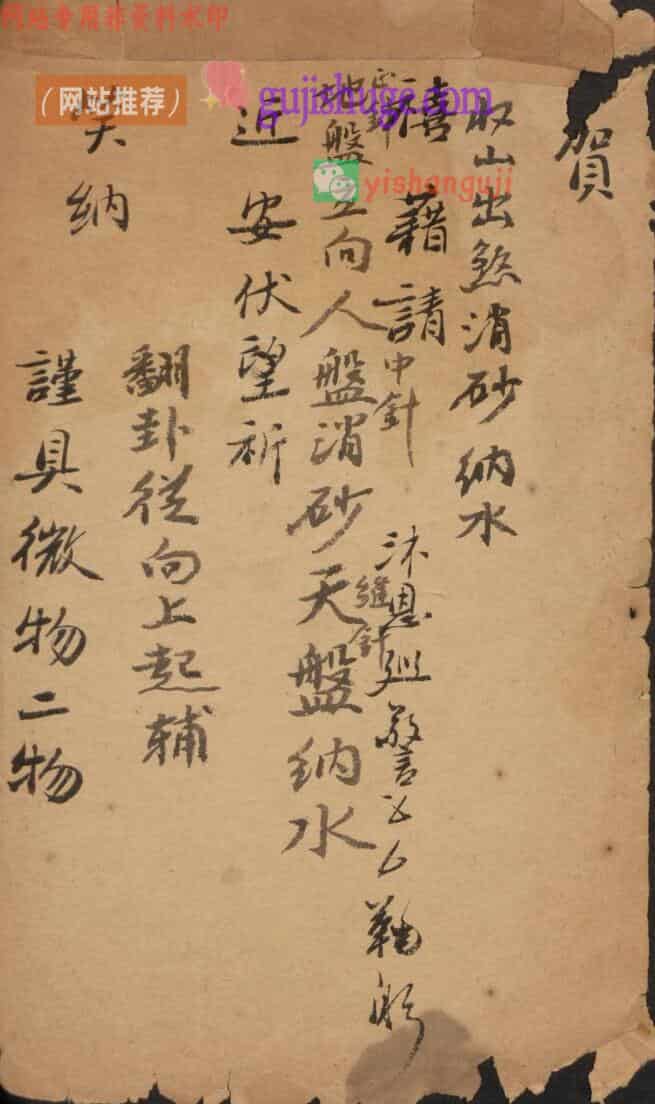 网站专用非资料水印
（网站推荐）
gujishuge.com
yishanguji
賀
収山出煞消砂納水
禧藉請
中針
沐恩廵警鞠躬
縫針
地盤立向人盤消砂天盤納水
近安伏望祈
翻卦從向上起輔
笑納
謹具微物二物